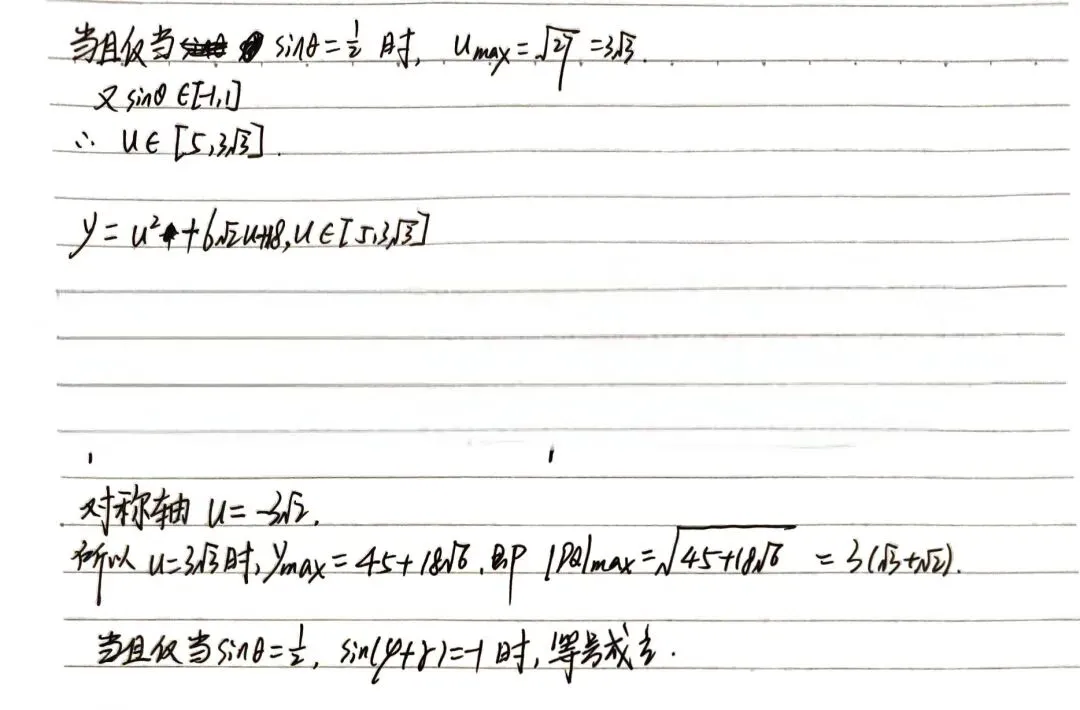 当且仅当 sinθ=1/2 时, u_max=√27=3√3.
又 sinθ∈[-1,1]
∴ u∈[5,3√3].
y=u²+6√2u+18,u∈[5,3√3]
对称轴 u=-3√2.
所以 u=3√3时,y_max=45+18√6,即 |PQ|_max=√(45+18√6) =3(√3+√2).
当且仅当sinθ=1/2, sin(φ+γ)=-1 时,等号成立.